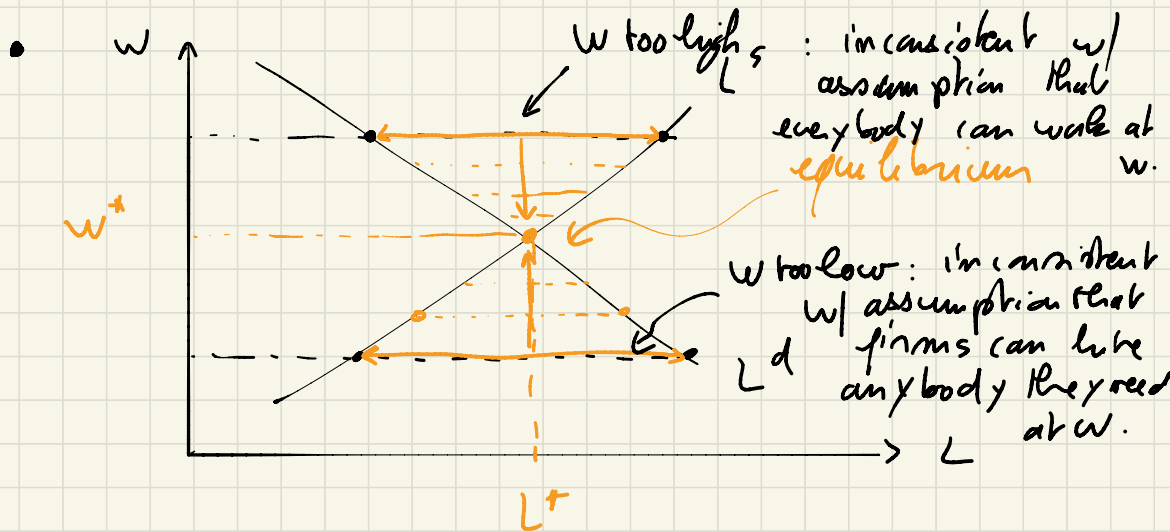 W
W too high : inconsistent w/
L^s assumption that
everybody can work at
w.
equilibrium
W*
W too low : inconsistent
w/ assumption that
L^d firms can hire
anybody they need
at w.
L
L*